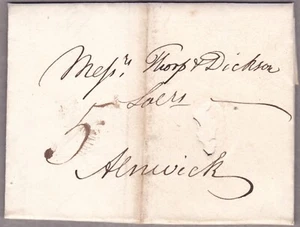 Messrs. Thorp & Dickson
Solrs
5
Alnwick